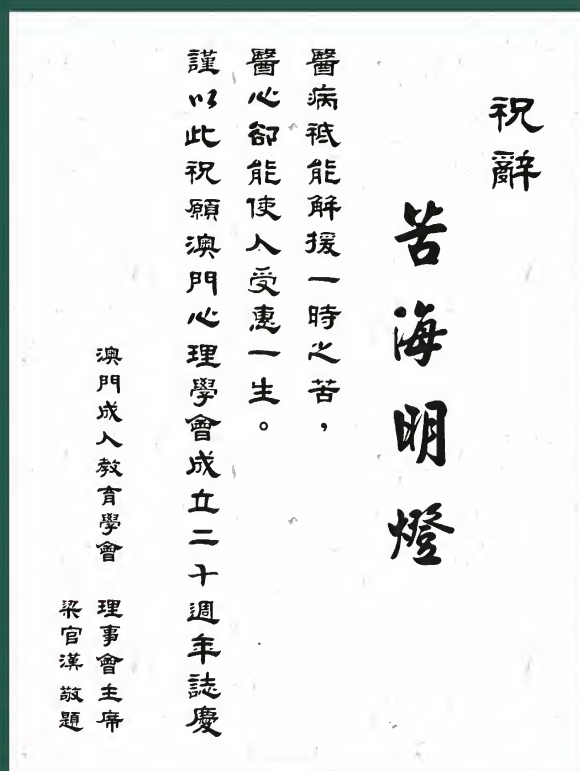 祝辭
苦海明燈
醫病祗能解援一時之苦，
醫心卻能使人受惠一生。
謹以此祝願澳門心理學會成立二十週年誌慶
澳門成人教育學會 理事會主席
梁官漢敬題